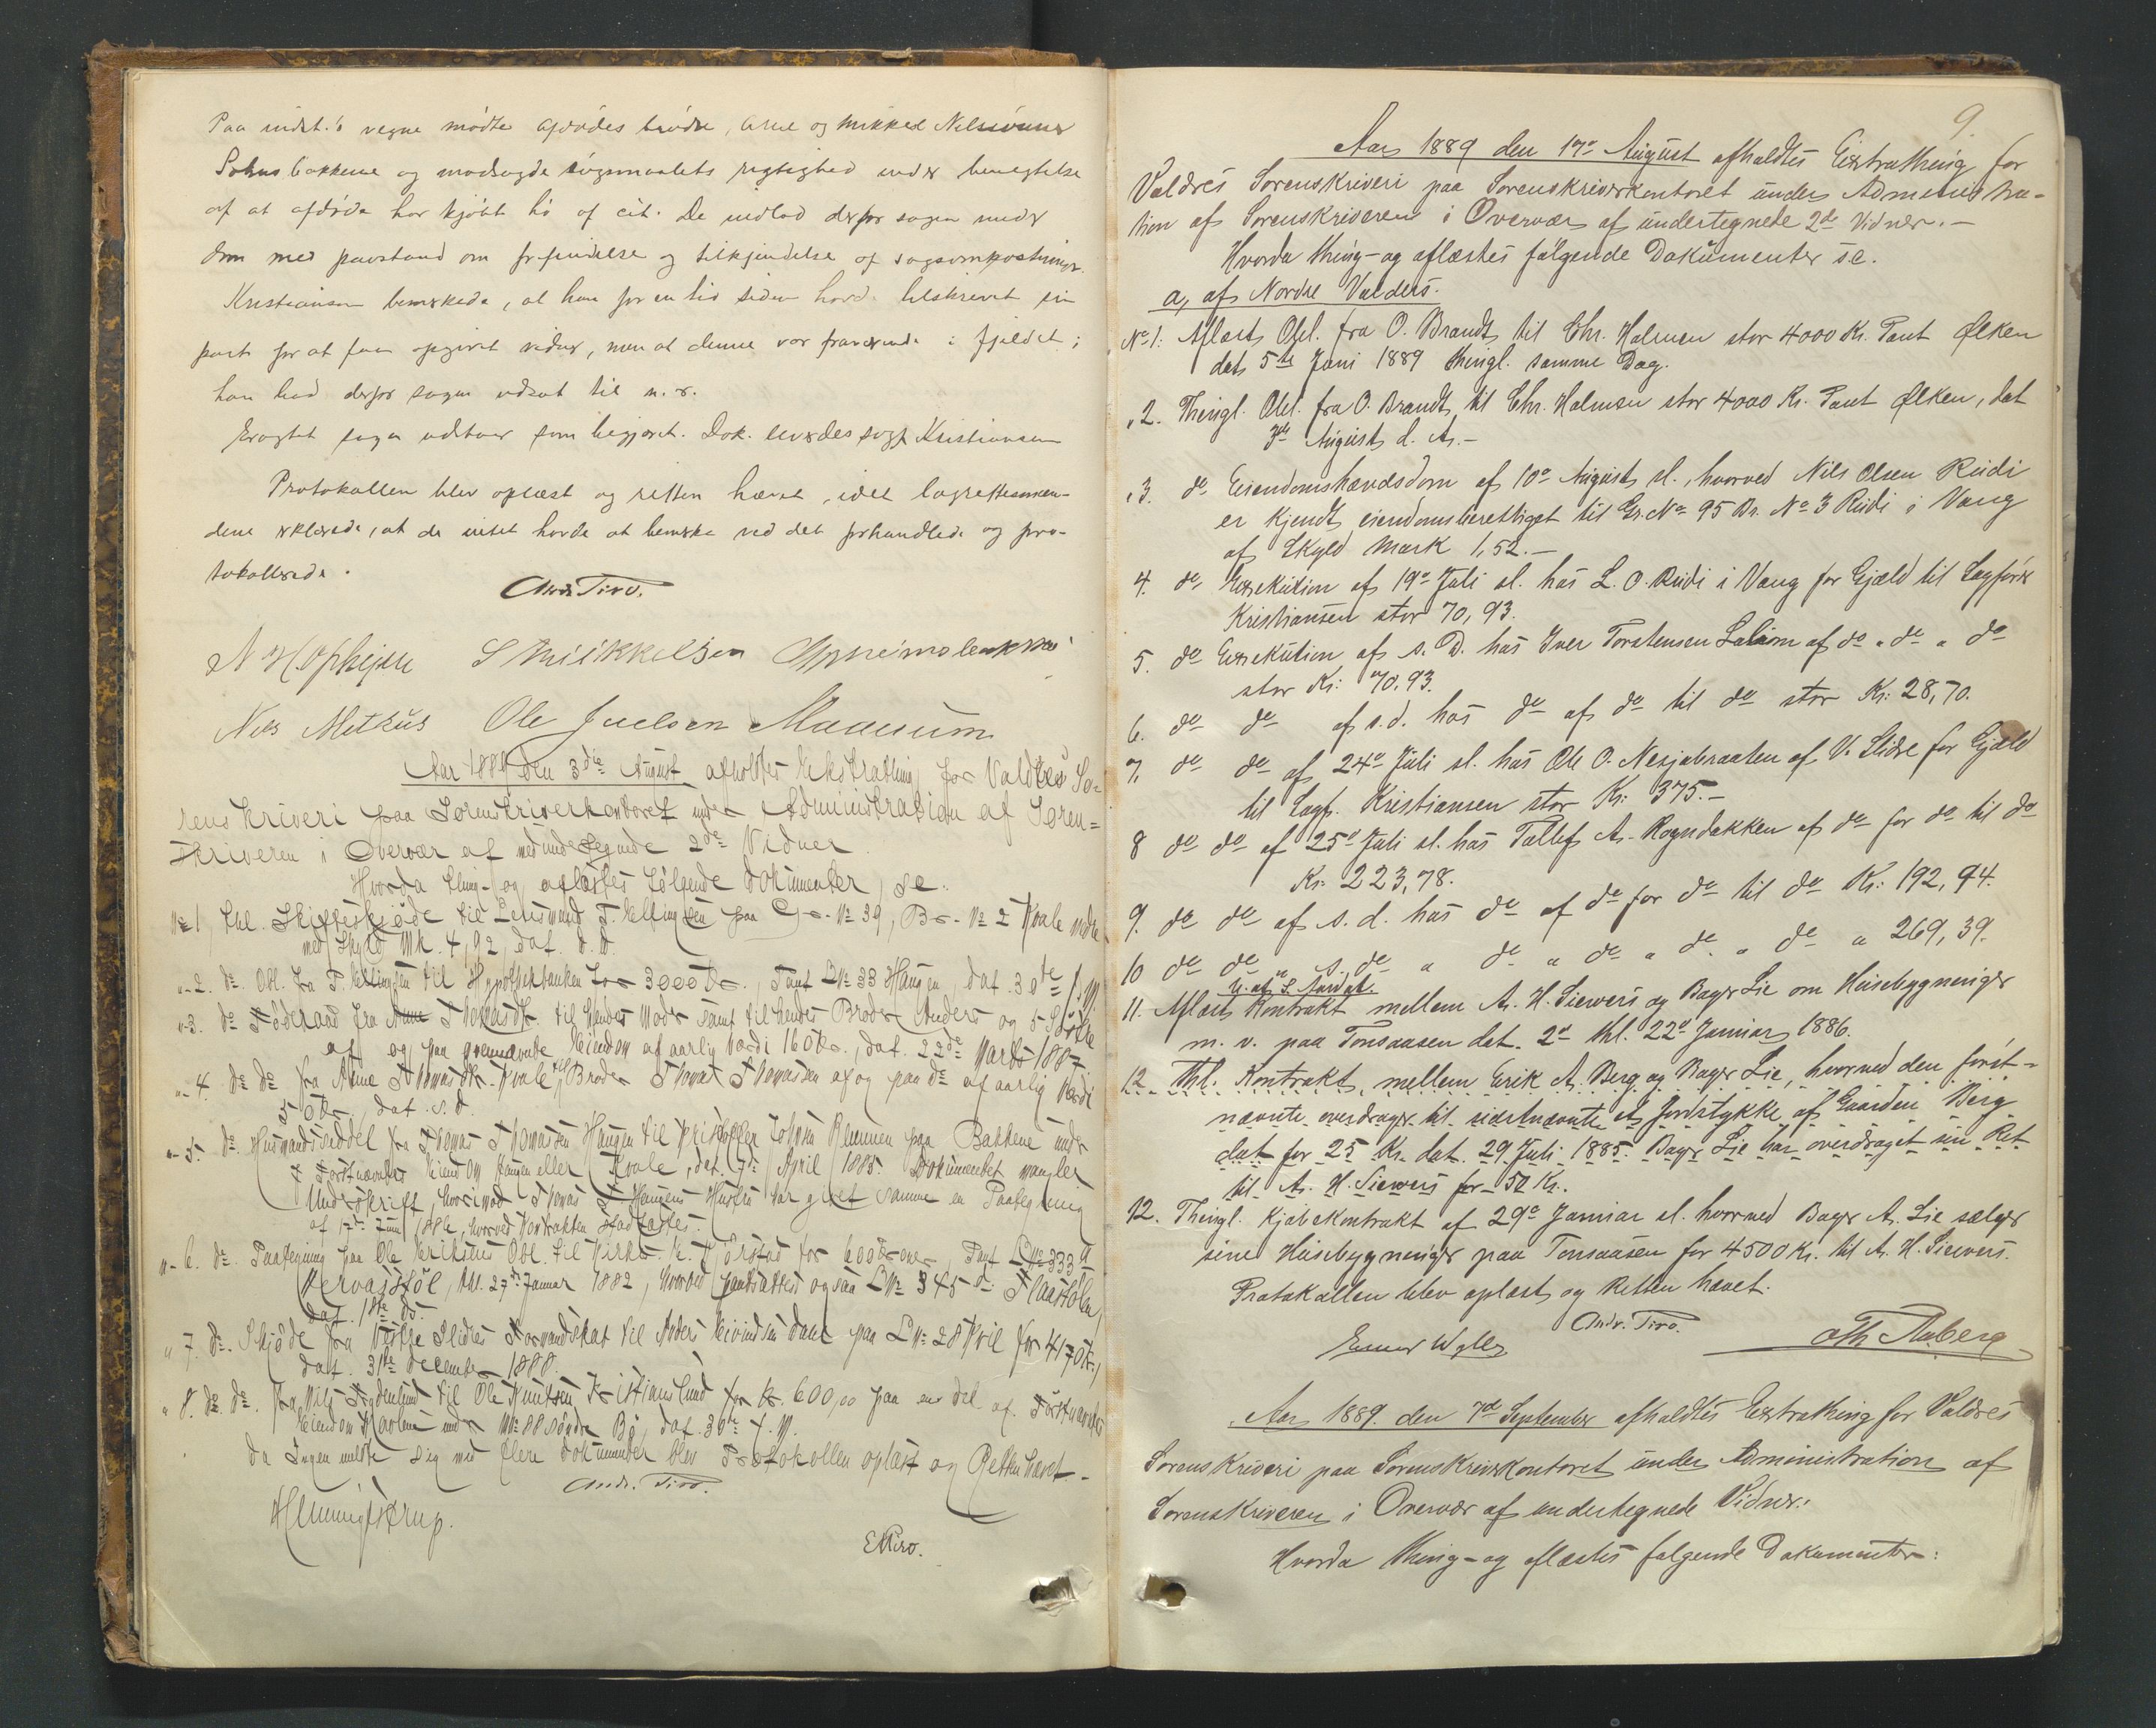 Paa indst.'s vegne mødte afdødes brødre, Arne og Mikkel Nilssønner
bakkene og modsagde søgsmaalets rigtighed under benegtelse
af at afdøde har kjøbt hø af cit. De indlod derfor sagen under
dom med paastand om frifindelse og tilkjendelse af sagsomkostninger.
Kristiansen bemærkede, at han for en tid siden havde tilskrevet sin
part for at faa opgivet vidner, men at denne var fraværende i fjeldet;
han bad derfor sagen udsat til n. r.
Eragtet sagen udstaar som begjæret. Dok. leveredes sagf. Kristiansen
Protokollen blev oplæst og retten hævet, idet lagrettesmæn-
dene erklærede, at de intet havde at bemærke ved det forhandlede og pro-
tokollerede.
Andr. Tiro.
S Mikkelsen
Nils Ole Juelsen Maanum
Aar 1889 den 3die August afholdtes Ekstrathing for Valdres So-
renskriveri paa Sorenskriverkontoret under Administration af Soren=
skriveren i Overvær af medundertegnede 2de Vidner
Hvorda thing- og aflæstes følgende Dokumenter, se.
No 1, thl. Skifteskjøde til Lensmand T. Kellingsen paa G- No 39, B- No 2 Kvale nedre
med Skyld Mk. 4,92, dat. d. D.
"-2. do. Obl. fra T. Kellingsen til Hypothekbanken for 3000 Kr., Pant LNo 33 Haugen, dat. 30de f. M.
"-3. do Føderaad fra Anne Thomasdtr. til hendes Moder samt til hendes Broder Anders og 5 Søstre
af og paa prenævnte Eiendom af aarlig Værdi 160 Kr., dat. 22de Marts 1887.
"-4. do do fra Anne Thomasdtr. Kvale til Broder Thomas Thomassen af og paa do af aarlig Værdi
50 Kr., dat. s. d.
"-5. do. Husmandsseddel fra Thomas Thomassen Haugen til Kristoffer Johnsen Remmen paa Bakkene under
førstnævntes Eiendom Haugen eller Kvale, dat. 7de April 1885. Dokumentet mangler
Underskrift, hvorimod Thomas T. Haugens Hustru har givet samme en Paategning
af 17de Juni 1886, hvorved Kontrakten stadfæstes.
"-6. do. Paategning paa Ole Eriksens Obl. til Kirkes. K. Hørstad for 600 Kroner Pant LNo 333 a
Hervasstøl, thl. 27de Januar 1882, hvorved pantsættes ogsaa LNo 345 d Flaastølen,
dat. 1ste ds.
" 7. do. Skjøde fra Vestre Slidres Formandskab til Anders Eivindsen Dahl paa LNo 28 Kvil for 4170 Kr.,
dat. 31te December 1888.
" 8. do. do. fra Nils Frydenlund til Ole Knutsen Kristianslund for Kr. 600,00 paa en del af førstnævntes
Eiendom under No 88 søndre Bø, dat. 30te f. M.
Da Ingen meldte sig med flere Dokumenter blev Protokollen oplæst og Retten hævet.-
Andr. Tiro.
ETiro.
9.
Aar 1889 den 17de August afholdtes Extrathing for
Valdres Sorenskriveri paa Sorenskriverkontoret under Administra-
tion af Sorenskriveren i Overvær af undertegnede 2de Vidner.-
Hvorda thing- og aflæstes følgende Dokumenter se.
a, af Nordre Valders.
No 1. Aflæst Obl. fra O. Brandt til Chr. Holmen stor 4000 Kr. Pant Ølken
dat. 5te Juni 1889 thingl. samme Dag.
" 2. Thingl. Obl. fra O. Brandt til Chr. Holmen stor 4000 Kr. Pant Ølken, dat
7de August d. A.-
" 3. do Eiendomshævdsdom af 10de August sl., hvorved Nils Olsen Rudi
er kjendt eiendomsberettiget til Gr. No 95 Br. No 3 Rudi i Vang
af Skyld Mark 1,52.-
4. do, Exsekution af 19de Juli sl. hos L. O. Rudi i Vang for Gjæld til Sagfører
Kristiansen stor 70,93.
5. do Exsekution af s. D. hos Iver Torstensen af do " do " do
stor Kr: 70,93.
6. do do af s. d. hos do af do til do stor Kr: 28,70.
7. do do af 24de Juli sl. hos Ole O. Nesjabraaten af V. Slidre for Gjæld
til Sagf. Kristiansen stor Kr: 375.-
8 do do af 25de Juli sl. hos Tollef A. Rogndokken af do for do til do
Kr. 223,78.
9. do do af s. d. hos do af do for do til do Kr: 192,94.
10 do do " s. do " do " do " do " do " 269,39.
11. Aflæst Kontrakt mellem A. H. Siewers og Bager Lie om Husebygninger
m. v. paa Tonsaasen dat. 2de thl. 22de Januar 1886.
12. Thl. Kontrakt mellem Erik A. Berg og Bager Lie, hvorved den først-
nævnte overdrager til sidstnævnte et Jordstykke af Gaarden Berg
dat for 25 Kr. dat. 29 Juli 1885. Bager Lie har overdraget sin Ret
til A. H. Siewers for 50 Kr.
12. Thingl. Kjøbekontrakt af 29de Januar sl. hvorved Bager A. Lie sælger
sine Husebygninger paa Tonsaasen for 4500 Kr. til A. H. Siewers.
Protokollen blev oplæst og Retten hævet.
Andr. Tiro.
Einar Wyller Oth Aaberg
Aar 1889. den 7de September afholdtes Extrathing for Valdres
Sorenskriveri paa Sorenskriverkontoret under Administration af
Sorenskriveren i Overvær af undertegnede Vidner.
Hvorda thing- og aflæstes følgende Dokumenter: